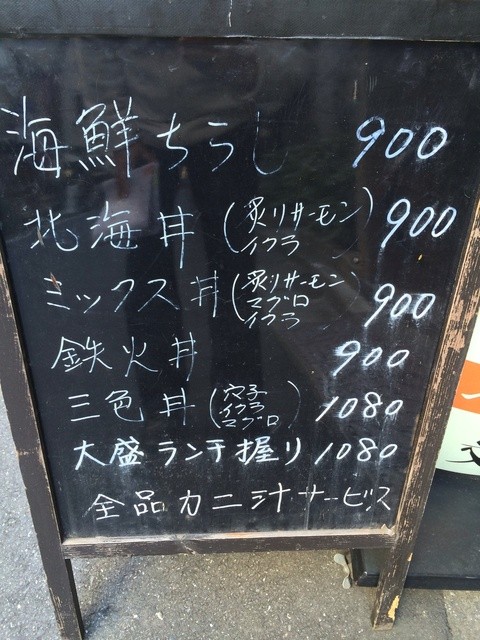 海鮮ちらし 900
北海丼(炙りサーモン イクラ) 900
ミックス丼(炙りサーモン マグロ イクラ) 900
鉄火丼 900
三色丼(穴子 イクラ マグロ) 1080
大盛ランチ握り 1080
全品カニ汁サービス